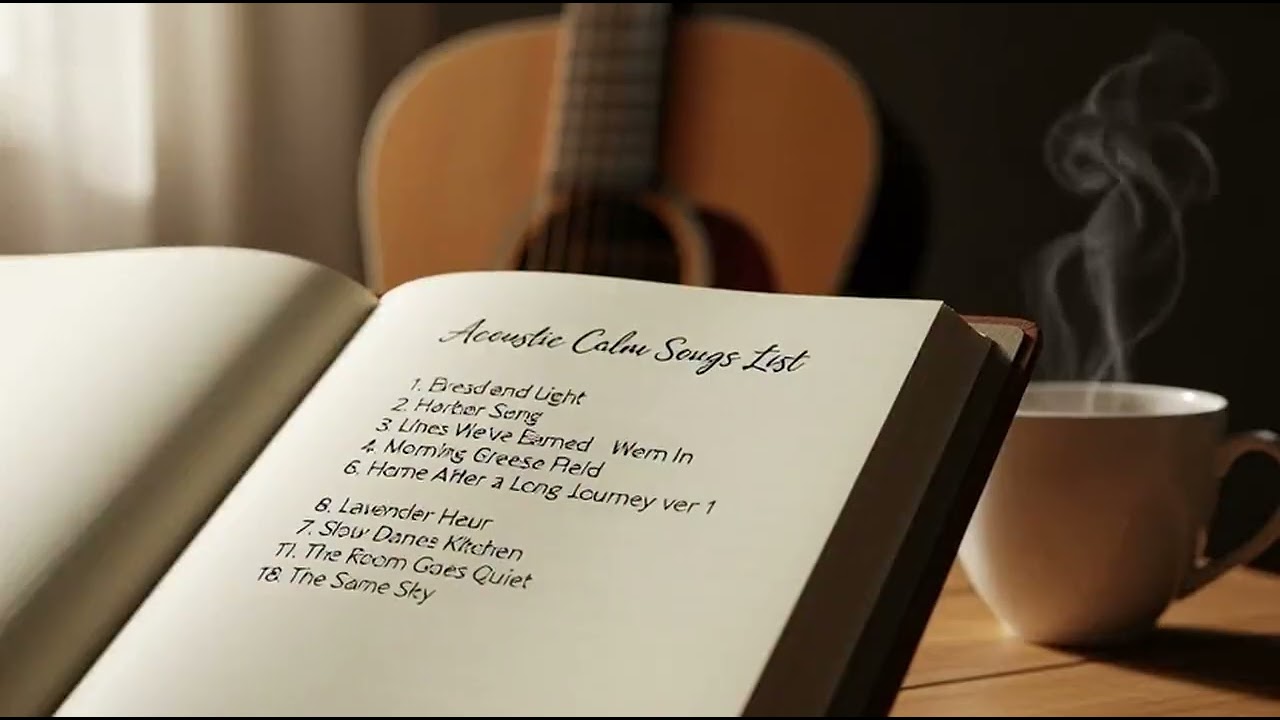 Acoustic Calm Songs List
1. Bresd end Light
2. Horber Song
3. Lines We've Earned Worn In
4. Morning Greese Field
6. Home After a Long Journey ver 1
8. Lavender Hour
7. Slow Dance Kitchen
11. The Room Goes Quiet
18. The Same Sky